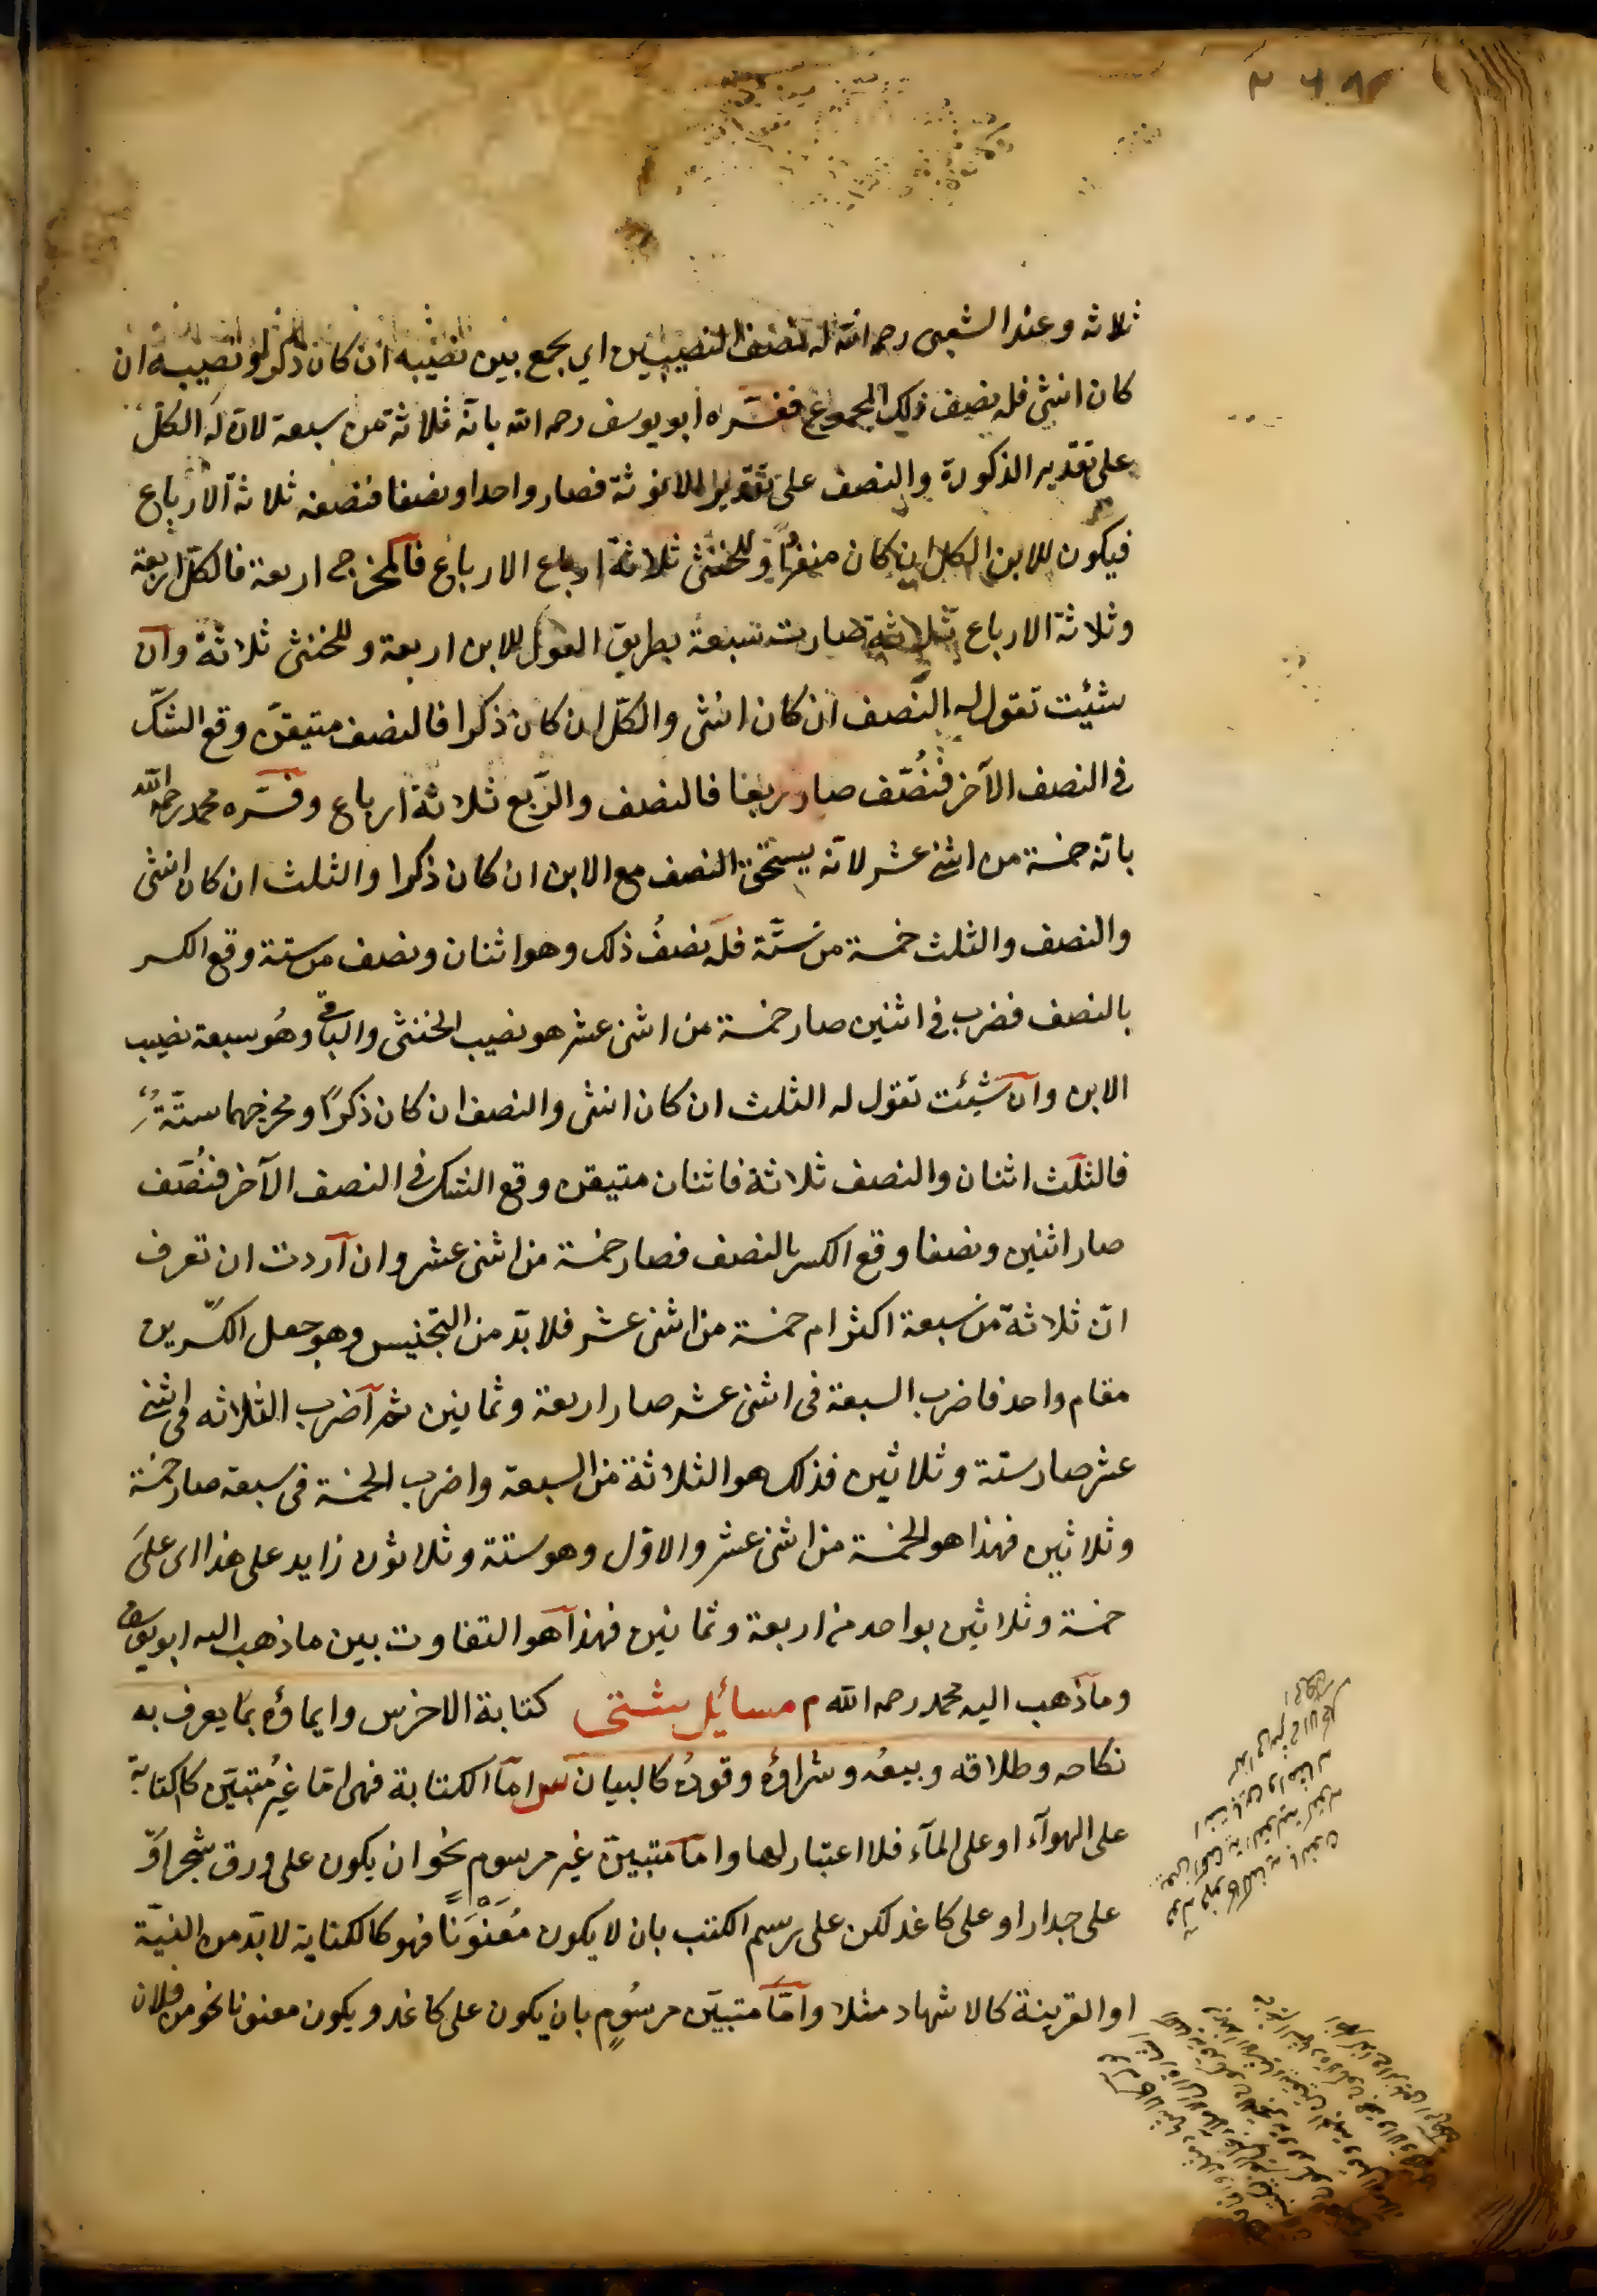 ثلاثه وعند الشعبى رحمه الله له نصف النصيبين اي يجمع بين نصيبه ان كان ذكرا ونصيبه ان
كان انثى فله نصف ذلك المجموع ففسّره ابو يوسف رحمه الله بانّه ثلاثة من سبعة لان له الكلّ
على تقدير الذكورة والنصف على تقدير الانوثة فصار واحدا ونصفا فنصفه ثلاثة الارباع
فيكون للابن الكل ان كان منفردا وللخنثى ثلاثة ارباع الارباع فالمخرج اربعة فالكلّ اربعة
وثلاثة الارباع ثلاثة صارت سبعة بطريق العول للابن اربعة وللخنثى ثلاثة وان
شئيت تقول له النّصف ان كان انثى والكلّ ان كان ذكرا فالنصف متيقّن وقع الشكّ
فى النصف الآخر فنُصّف صار ربعا فالنصف والرّبع ثلاثة ارباع وفسّره محمد رحمه الله
بانّه خمسة من اثنى عشر لانّه يستحق النصف مع الابن ان كان ذكرا والثلث ان كان انثى
والنصف والثلث خمسة من ستّة فله نصفُ ذلك وهو اثنان ونصف من ستة وقع الكسر
بالنصف فضرب فى اثنين صار خمسة من اثنى عشر هو نصيب الخنثى والباقى وهُو سبعة نصيب
الابن وان شئيت تقول له الثلث ان كان انثى والنصف ان كان ذكرًا ومخرجهما ستّةٌ
فالثلث اثنان والنصف ثلاثة فاثنان متيقن وقع الشك فى النصف الآخر فنُصّف
صار اثنين ونصفا وقع الكسر بالنصف فصار خمسة من اثنى عشر وان اردت ان تعرف
انّ ثلاثة من سبعة اكثر ام خمسة من اثنى عشر فلا بدّ من التجنيس وهو جعل الكسرين
مقام واحد فاضرب السبعة فى اثنى عشر صار اربعة وثمانين ثم اضرب الثلاثه فى اثنى
عشر صار ستة وثلاثين فذلك هو الثلاثة من السبعة واضرب الخمسة فى سبعة صار خمسة
وثلاثين فهذا هو الخمسة من اثنى عشر والاوّل وهو ستة وثلاثون زايد على هذا اى على
خمسة وثلاثين بواحد من اربعة وثمانين فهذا هو التفاوت بين ما ذهب اليه ابو يوسف
وما ذهب اليه محمد رحمه الله م مسائل شتى كتابة الاخرس وايماؤه بما يعرف به
نكاحه وطلاقه وبيعُه وشراؤه وقودُه كالبيان ش امّا الكتابة فهى امّا غيرُ متبيّن كالكتابة
على الهوآء او على المآء فلا اعتبار لها وامّا متبيّن غير مرسوم نحو ان يكون على ورق شجر او
على جدار او على كاغد لكن على رسم الكتب بان لا يكون مُعَنْوَنًا فهو كالكناية لا بدّ من النيّة
او القرينة كالاشهاد مثلا وامّا متبيّن مرسُومٍ بان يكون على كاغد ويكون معنونا نحو من فلان